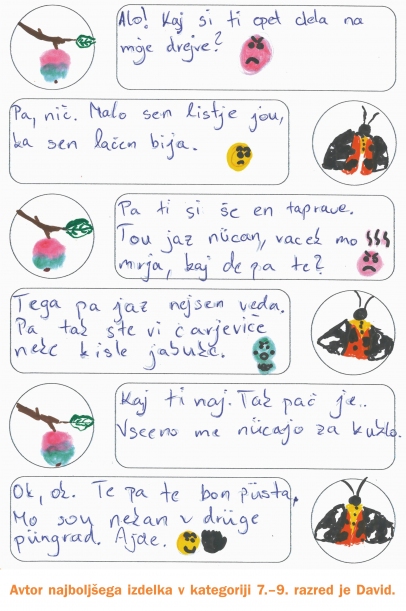 Alo! Kaj si ti opet dela na
moje drejve?
Pa, nič. Malo sen listje jou,
ka sen lačen bija.
Pa ti si še en taprave.
Tou jaz nücan, vaček mo
mirja, kaj de pa te?
Tega pa jaz nejsen veda.
Pa tak ste vi carjeviče
neke kisle jabuke.
Kaj ti naj. Tak pač je..
Vseeno me nücajo za kuhlo.
Ok, ok. Te pa te bon püsta,
Mo souv nekan v drüge
püngrad. Ajde.
Avtor najboljšega izdelka v kategoriji 7.–9. razred je David.